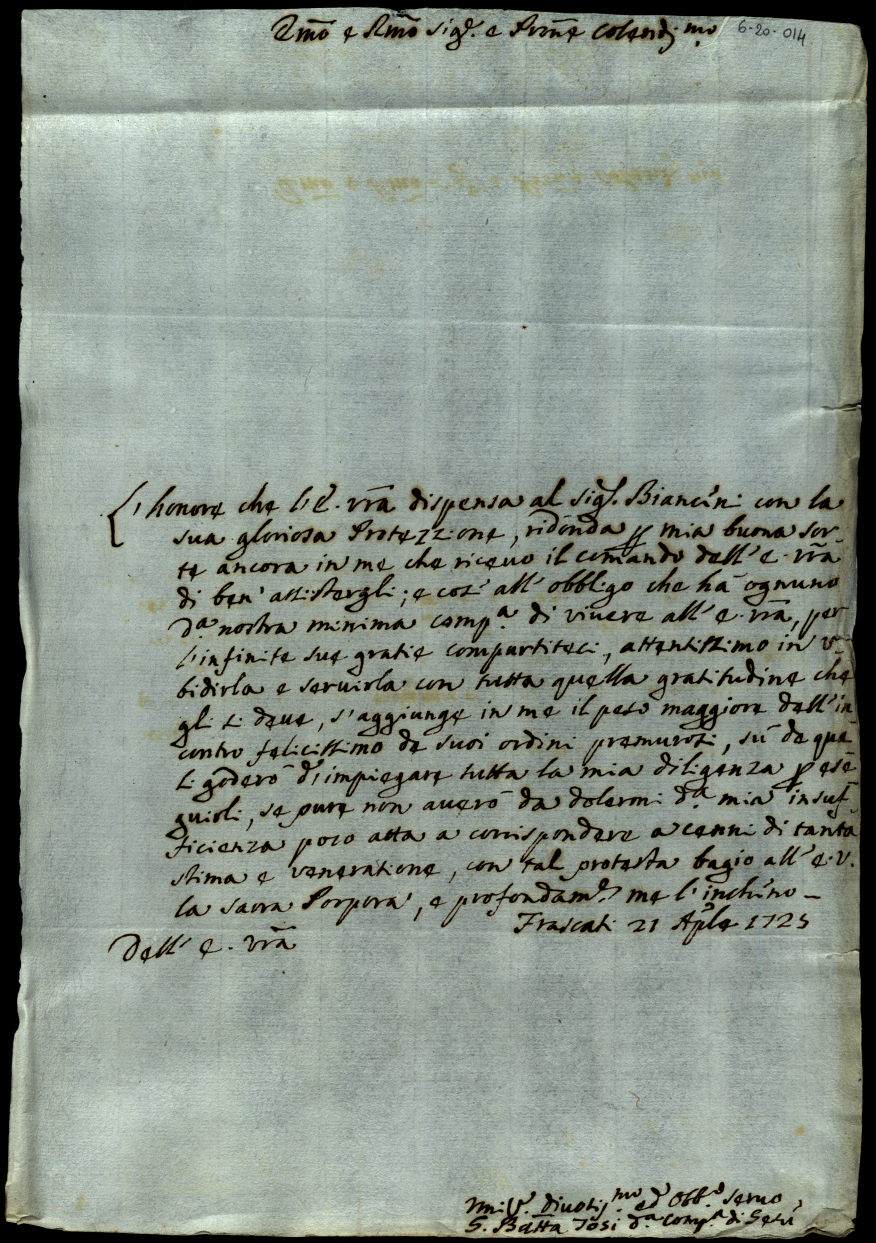 Emõ e Rmõ Sig.r e Prõne Colendis.mo
6-20-014
L'honore che l'E. Vrã dispensa al Sig.r Biancini con la
sua gloriosa Protezzione, ridonda p mia buona sor-
te ancora in me che ricevo il comando dell'E. Vrã
di ben' assistergli; e così all' obbligo che hà ognuno
d.a nostra minima comp.a di vivere all'E. Vrã, per
l'infinite sue gratie compartiteci, attentissimo in v-
bidirla e servirla con tutta quella gratitudine che
gli si deve, s'aggiunge in me il peso maggiore dell'in-
contro felicissimo de suoi ordini premurosi, sù de que
si goderò d'impiegare tutta la mia diligenza p ese-
guirli, se pure non averò da dolermi d.a mia insuf-
ficienza poco atta a corrispondere a cenni di tanta
stima e veneratione, con tal protesta bagio all'E.V.
la sacra Porpora, e profondam.te me l'inchino_
Frascati 21 Aple 1725
Dell' E. Vrã
Umil.o Divotis.mo ed Obb.o Servo
G. Batta Tosi d.a Comp.a di Gesù